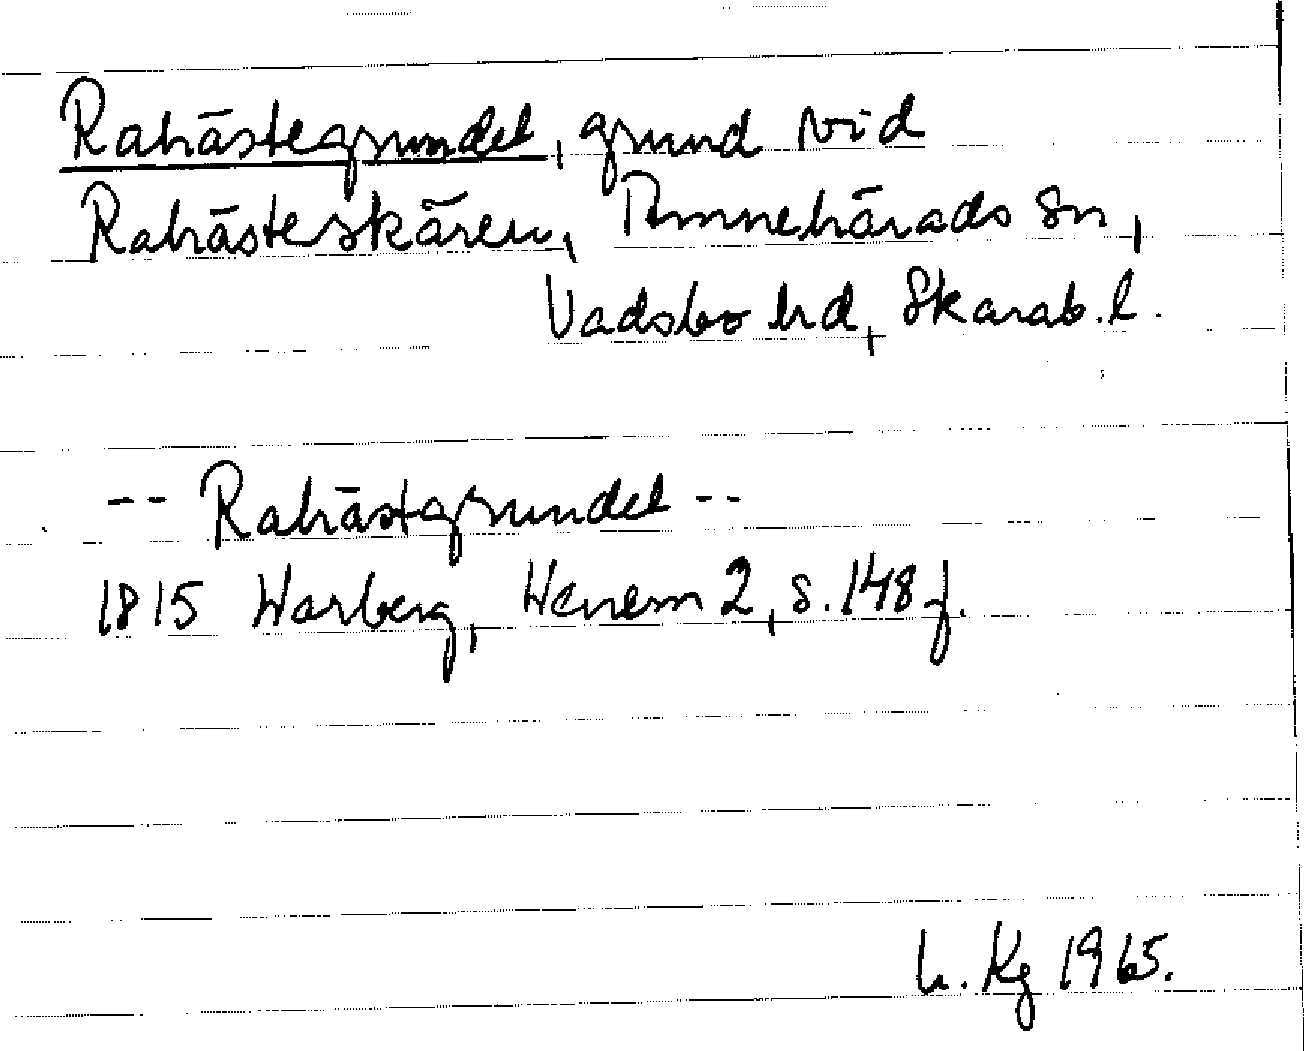 Rahästegrundet, grund vid
Rahästeskären, Amnehärads sn,
Vadsbo hd, Skarab. l.
-- Rahästgrundet --
1815 Warberg, Wenern 2, s. 148 f.
Kg 1965.